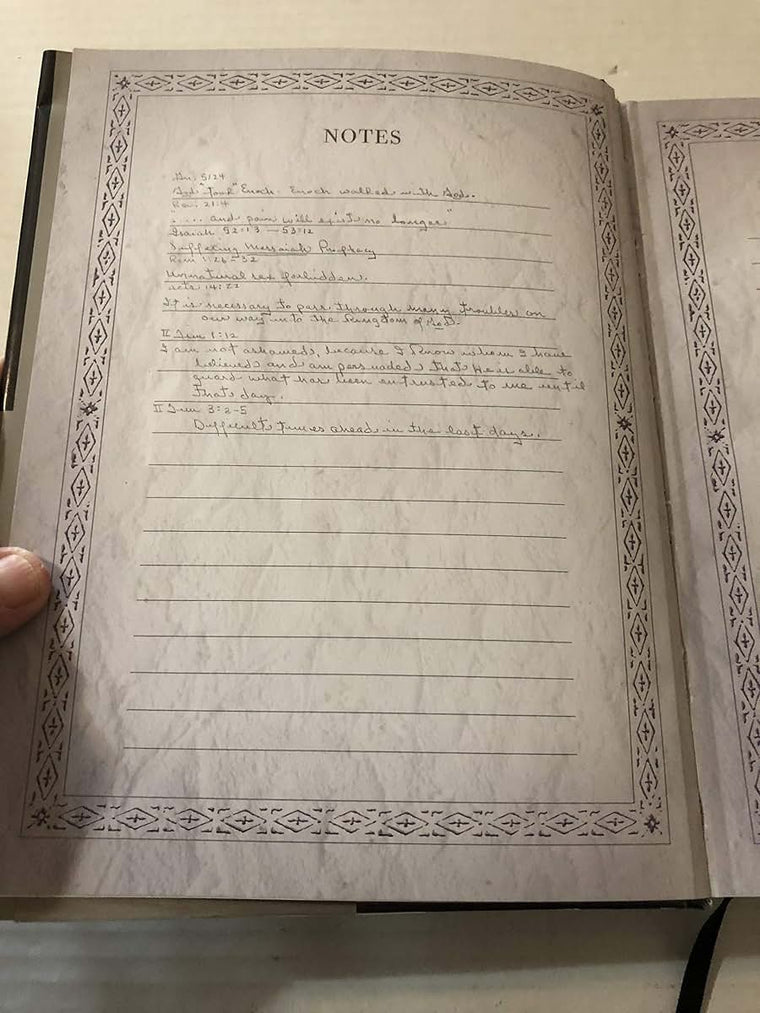 NOTES
Gn. 5:24
God "took" Enoch. Enoch walked with God.
Rev. 21:4
".... and pain will exist no longer"
Isaiah 52:13 – 53:12
Suffering Messiah Prophecy
Rom 1:26-32
Unnatural sex forbidden.
Acts 14:22
It is necessary to pass through many troubles on
our way into the Kingdom of God.
II Tim 1:12
I am not ashamed, because I know whom I have
believed and am persuaded that He is able to
guard what has been entrusted to me until
that day.
II Tim 3:2-5
Difficult times ahead in the last days.